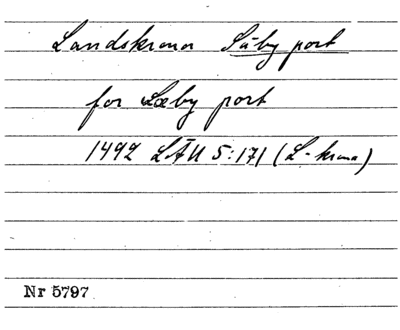 Landskrona Säby port
for Sæby port
1492 LÄU 5:171 (L-krona)
Nr 5797